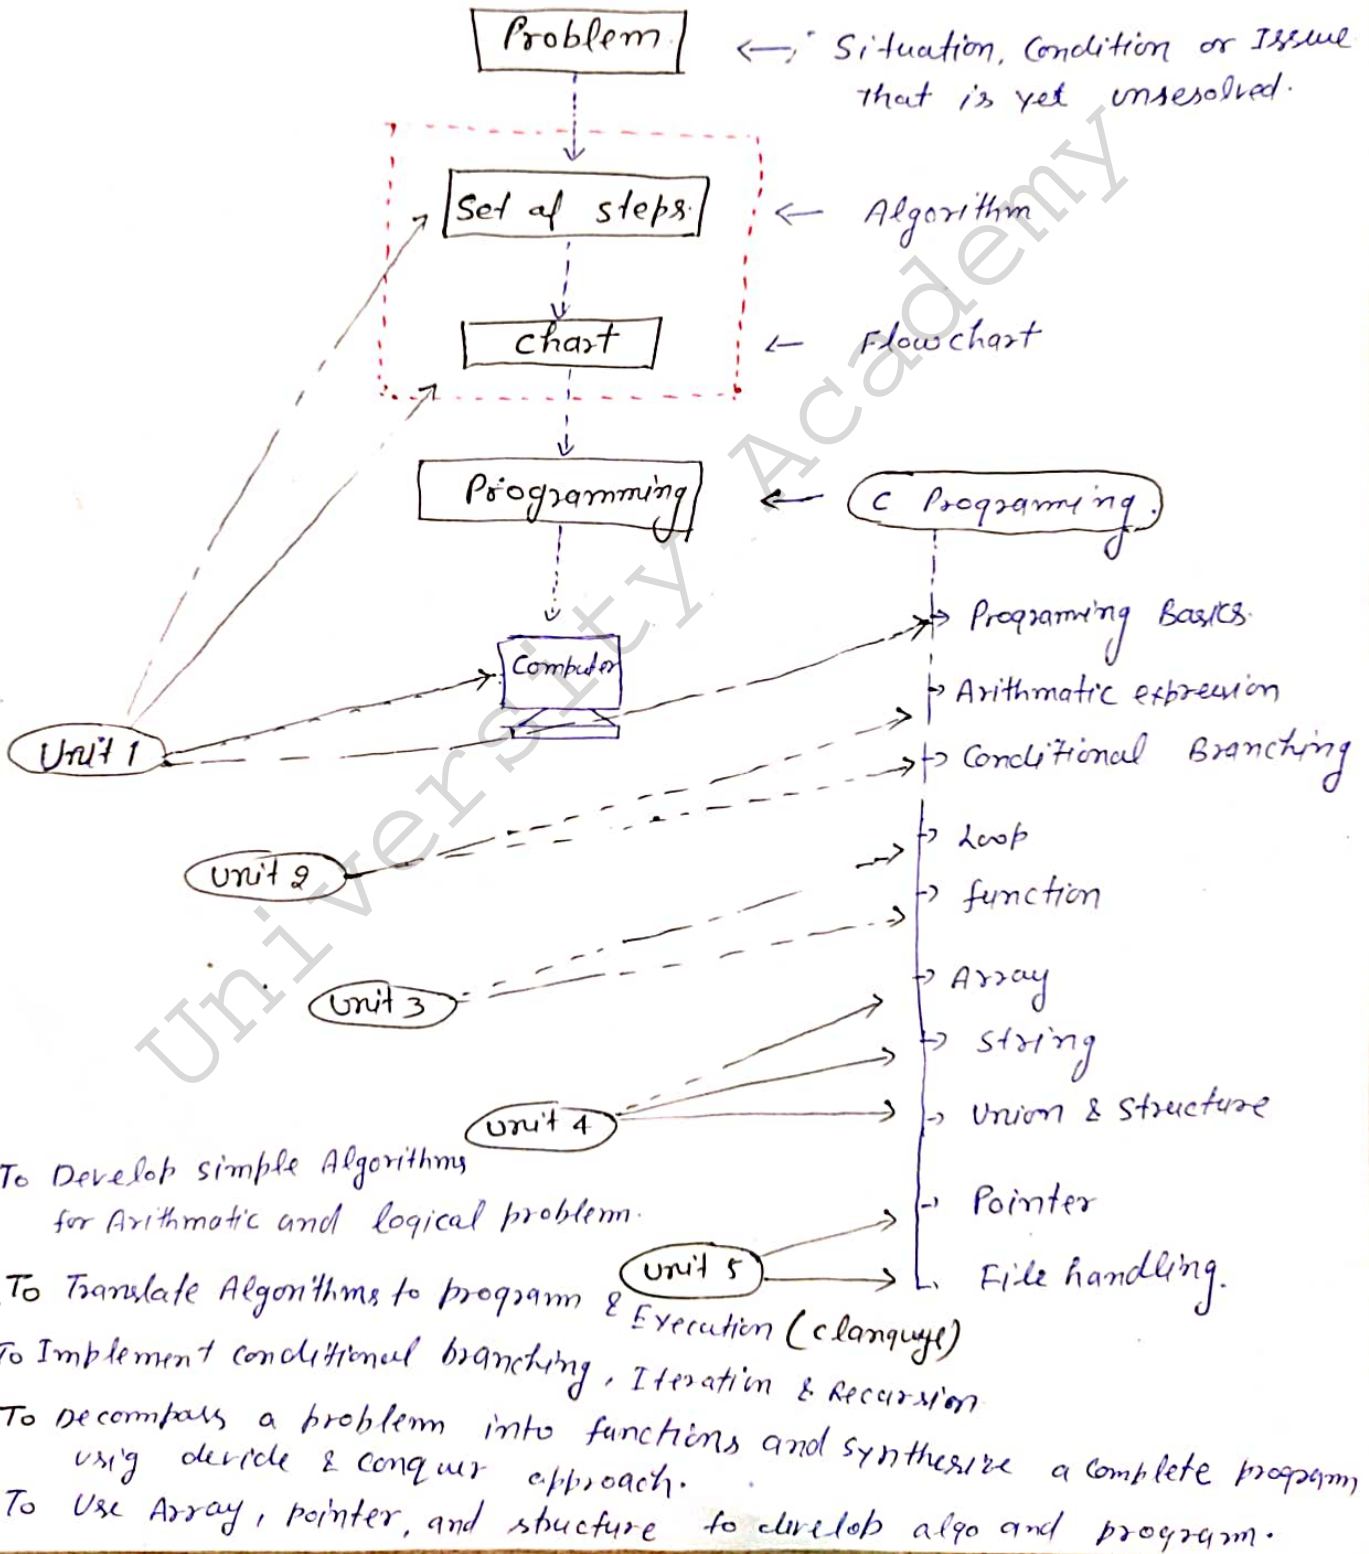 Problem
Situation, Condition or Issue
that is yet unresolved.
Set of steps.
Algorithm
Chart
Flowchart
Programming
C Programing.
Programing Basics.
Computer
Arithmatic expression
Unit 1
Conditional Branching
Loop
Unit 2
function
Array
Unit 3
String
Union & Structure
Unit 4
To Develop simple Algorithms
for Arithmatic and logical problem.
Pointer
Unit 5
File handling.
To Translate Algorithms to program & Execution (c language)
To Implement conditional branching, Iteration & Recursion
To Decompass a problem into functions and synthesize a complete program
usig devide & conquer approach.
To Use Array, pointer, and structure to develop algo and program.
University Academy